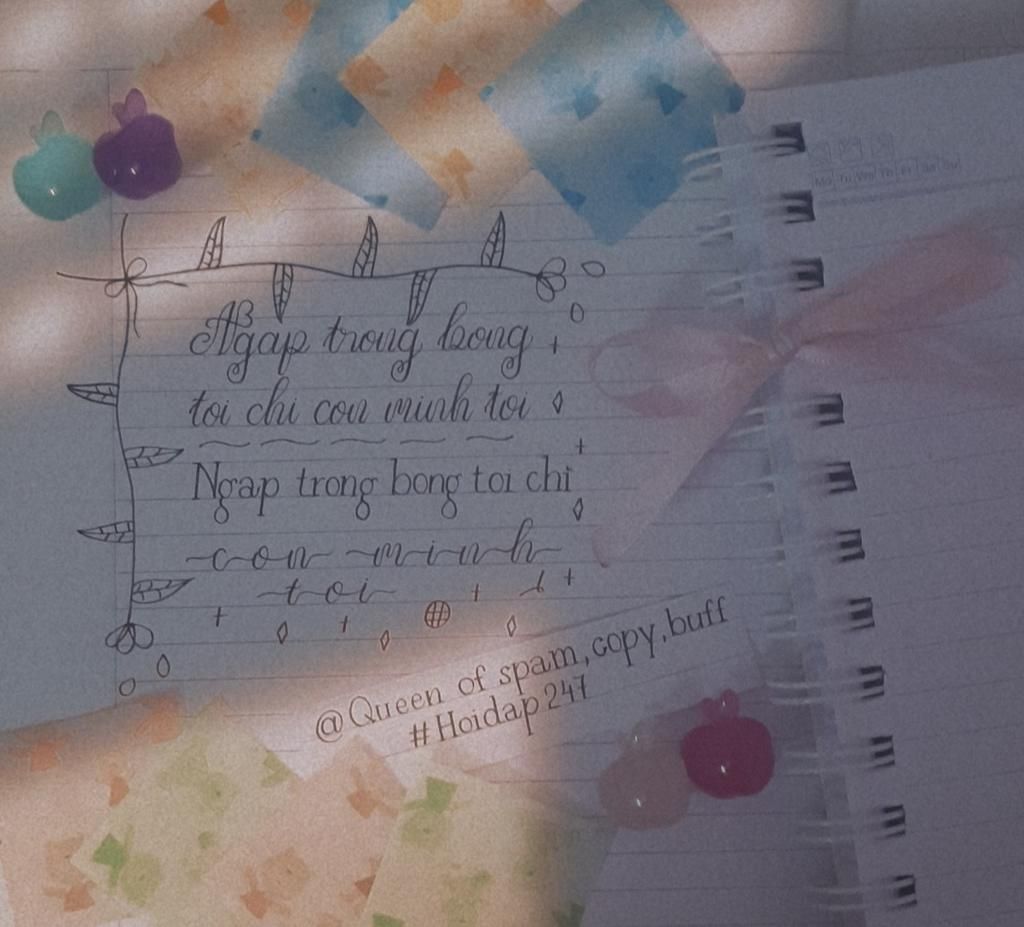 Ngap trong bong
toi chi con minh toi
Ngap trong bong toi chi
con minh
toi
@Queen of spam,copy,buff
#Hoidap247